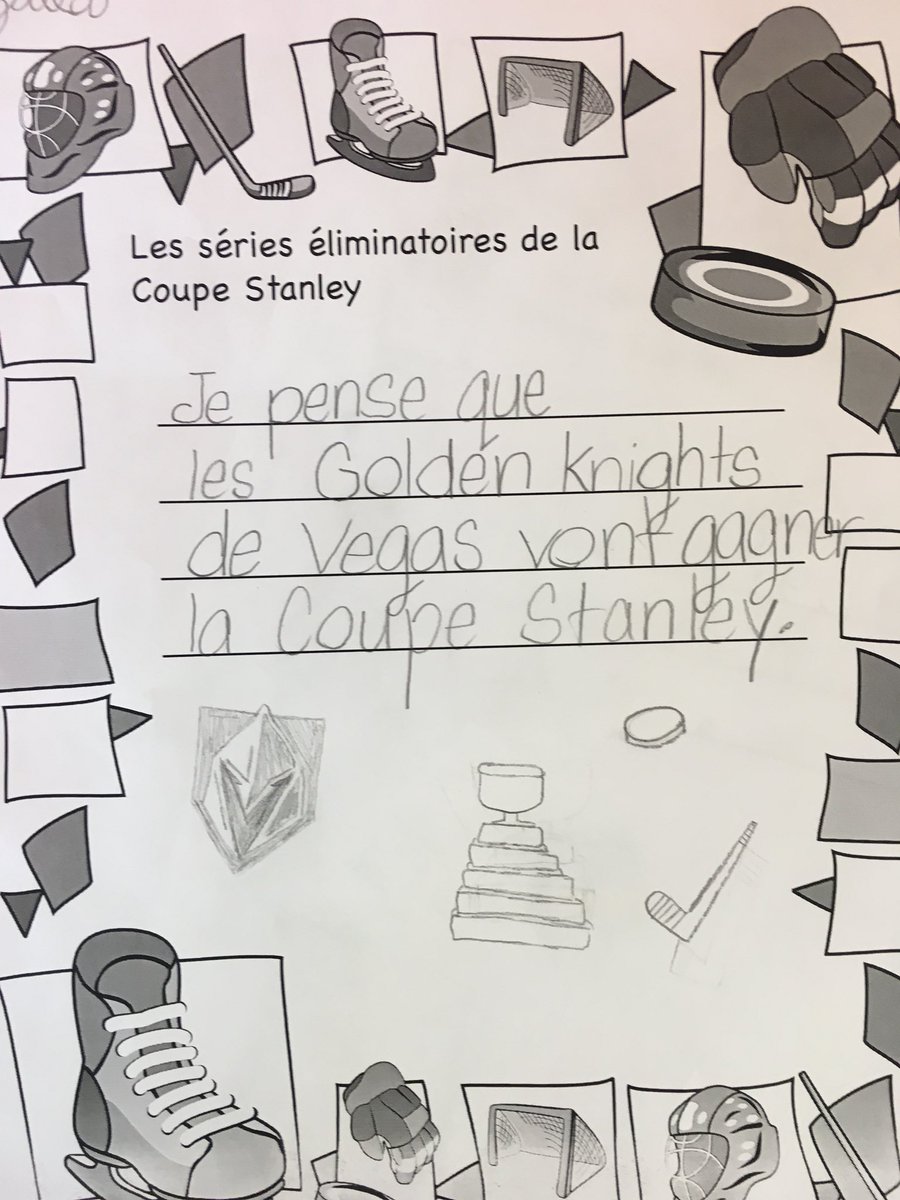 Les séries éliminatoires de la
Coupe Stanley
Je pense que
les Golden Knights
de Vegas vont gagner
la Coupe Stanley.